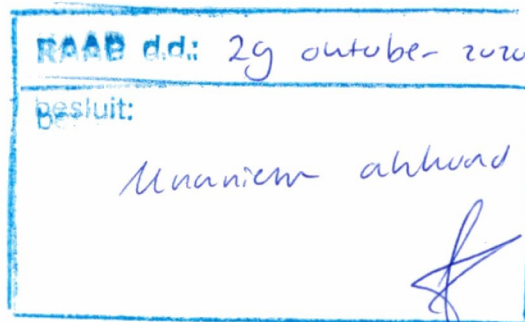 RAAB d.d.: 29 oktober 2020
besluit:
Unaniem akkoord